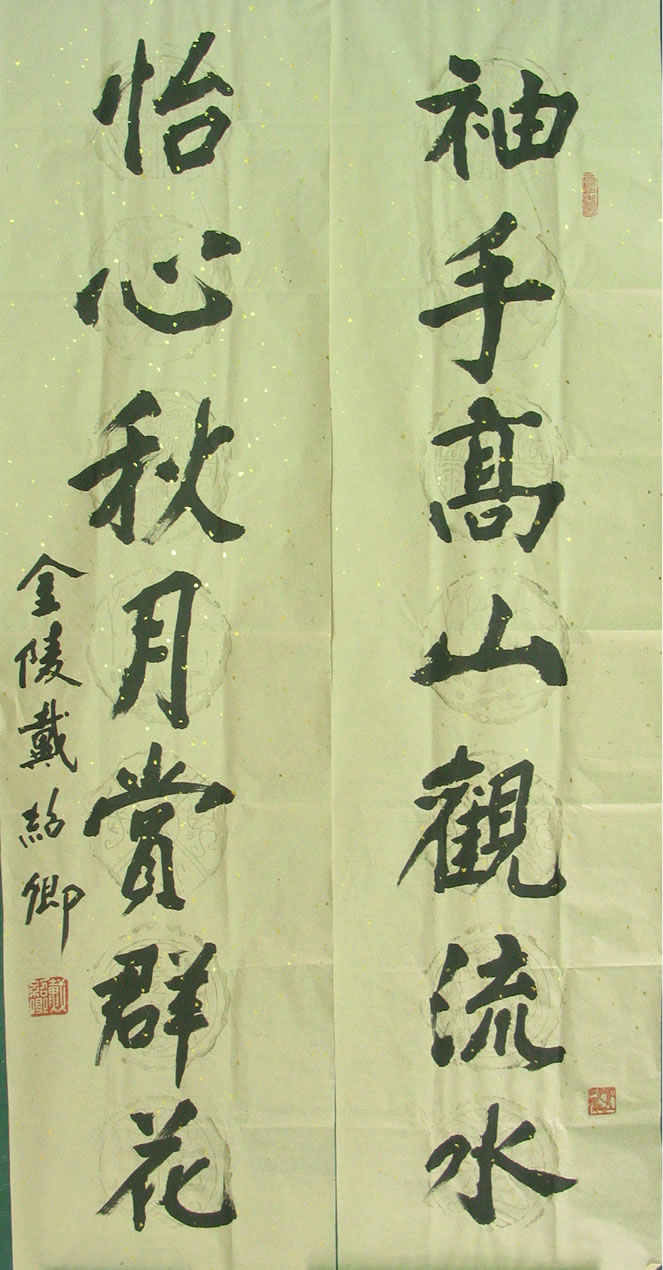 袖手高山觀流水
怡心秋月賞群花
金陵戴紹卿